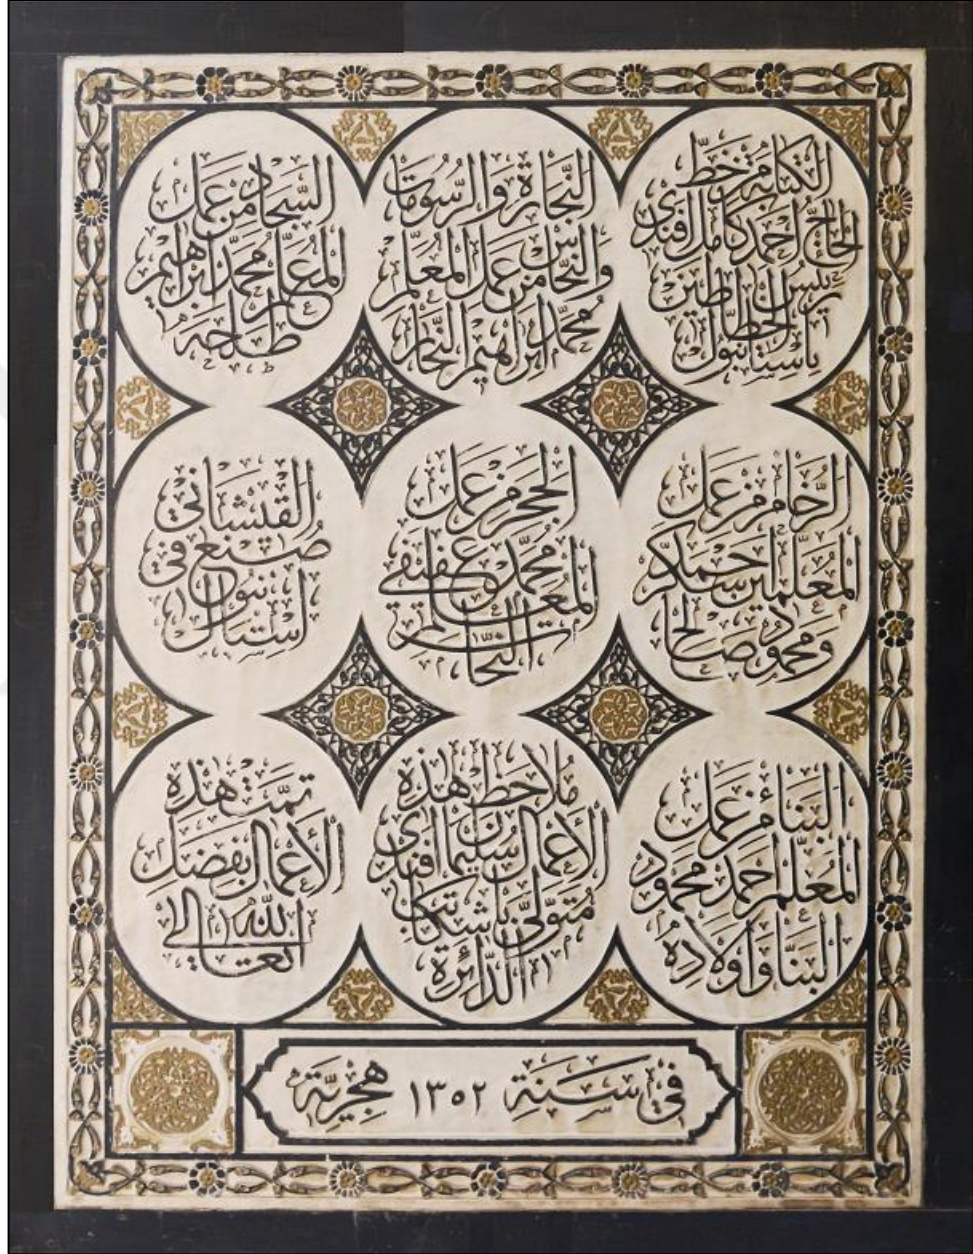 الكتابة من خط
الحاج احمد كامل افندي
رئيس الخطاطين
باستانبول
النجارة والرسومات
والنحاس من عمل المعلم
محمد ابراهيم النجار
السجاد من عمل
المعلم محمد ابراهيم
طلحه
الرخام من عمل
المعلمين
ومحمود صالح
الحجر من عمل
المعلم محمد عفيفي
النحات
القيشاني
صنع في
استانبول
البناء من عمل
المعلم احمد محمود
البنا واولاده
ملاحظ هذه
الأعمال سليمان افندي
متولي باشكاتب
الدائرة
تمت هذه
الأعمال بفضل
الله تعالى
في سنة ١٣٥٢ هجرية